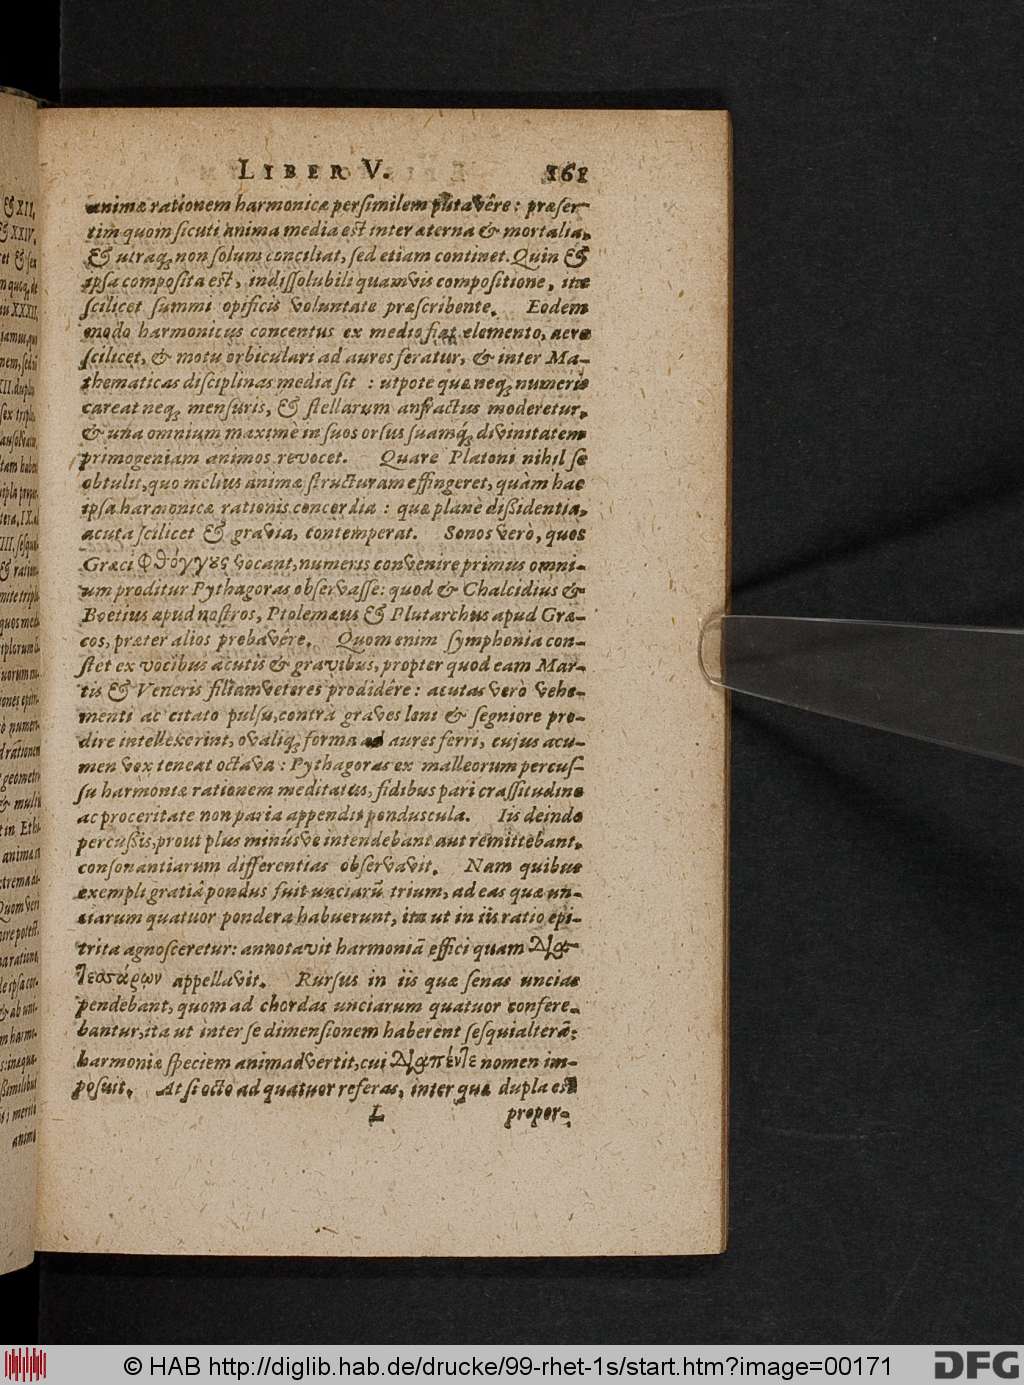 LIBER V. 161
animæ rationem harmonicæ persimilem putavêre: præser-
tim quom sicuti anima media est inter æterna & mortalia,
& utraq; non solum conciliat, sed etiam continet. Quin &
ipsa composita est, indissolubili quamvis compositione, ita
scilicet summi opificis voluntate præscribente. Eodem
modo harmonicus concentus ex medio fiat elemento, aere
scilicet, & motu orbiculari ad aures feratur, & inter Ma-
thematicas disciplinas media sit : utpote quæ neq; numeris
careat neq; mensuris, & stellarum anfractus moderetur,
& una omnium maximè in suos orsus suamq́; divinitatem
primogeniam animos revocet. Quare Platoni nihil se
obtulit, quo melius animæ structuram effingeret, quàm hac
ipsa harmonicæ rationis concordia : quæ planè dissidentia,
acuta scilicet & gravia, contemperat. Sonos verò, quos
Græci Φθόγγους vocant, numeris convenire primus omni-
um proditur Pythagoras observasse: quod & Chalcidius &
Boetius apud nostros, Ptolemæus & Plutarchus apud Græ-
cos, præter alios probavêre. Quom enim symphonia con-
stet ex vocibus acutis & gravibus, propter quod eam Mar-
tis & Veneris filiam veteres prodidêre: acutas verò vehe-
menti ac citato pulsu, contrà graves leni & segniore pro-
dire intellexerint, ovaliq; forma ad aures ferri, cujus acu-
men vox teneat octava : Pythagoras ex malleorum percus-
su harmoniæ rationem meditatus, fidibus pari crassitudine
ac proceritate non paria appendit ponduscula. Iis deinde
percussis, prout plus minúsve intendebant aut remittebant,
consonantiarum differentias observavit. Nam quibus
exempli gratiâ pondus fuit unciarū trium, ad eas quæ un-
ciarum quatuor pondera habuerunt, ita ut in iis ratio epi-
trita agnosceretur: annotavit harmoniā effici quam Διὰ
τεσσάρων appellavit. Rursus in iis quæ senas uncias
pendebant, quom ad chordas unciarum quatuor confere-
bantur, ita ut inter se dimensionem haberent sesquialterā;
harmoniæ speciem animadvertit, cui Διαπέντε nomen im-
posuit. At si octo ad quatuor referas, inter quæ dupla est
L propor-
© HAB http://diglib.hab.de/drucke/99-rhet-1s/start.htm?image=00171
DFG